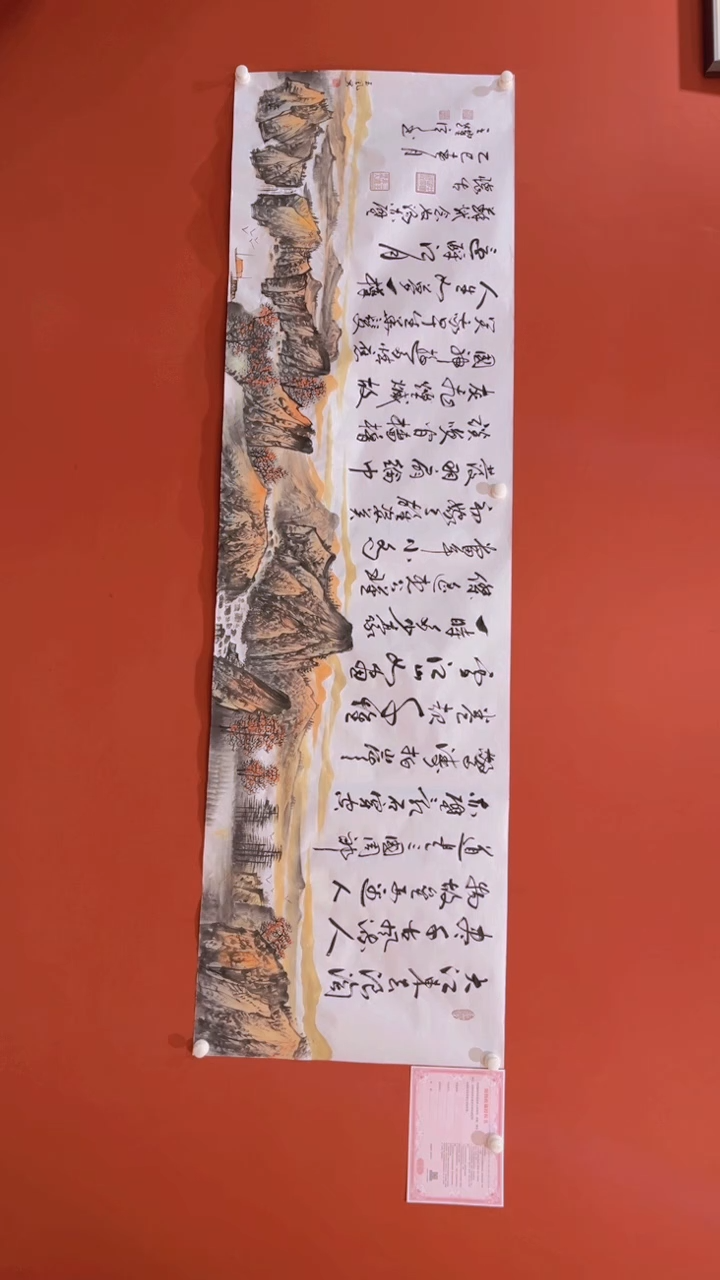 大江東去浪淘
盡千古風流人
物故壘西邊人
道是三國周郎
赤壁亂石穿空
驚濤拍岸
卷起千堆
雪江山如畫
一時多少豪
傑遙想公瑾
當年小喬
初嫁了雄姿英
發羽扇綸巾
談笑間檣櫓
灰飛煙滅故
國神遊多情應
笑我早生華髮
人生如夢一樽
還酹江月
蘇軾念奴嬌赤壁
懷古
乙巳